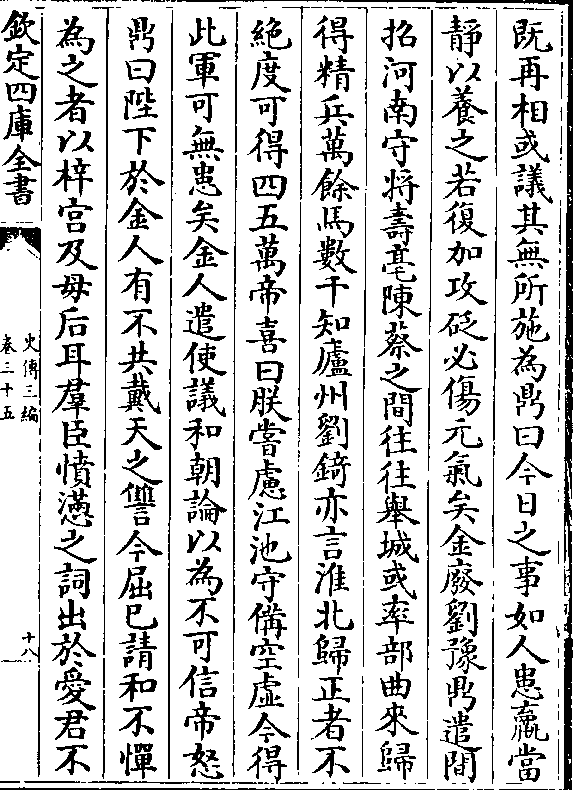 既再相或議其無所施為鼎曰今日之事如人患羸當
靜以養之若復加攻砭必傷元氣矣金廢劉豫鼎遣間
招河南守將壽亳陳蔡之間往往舉城或率部曲來歸
得精兵萬餘馬數千知廬州劉錡亦言淮北歸正者不
絶度可得四五萬帝喜曰朕嘗慮江池守備空虛今得
此軍可無患矣金人遣使議和朝論以為不可信帝怒
鼎曰陛下於金人有不共戴天之讐今屈已請和不憚
為之者以梓宫及母后耳羣臣憤懣之詞出於愛君不
欽定四庫全書
史傳三編
卷三十五
十八